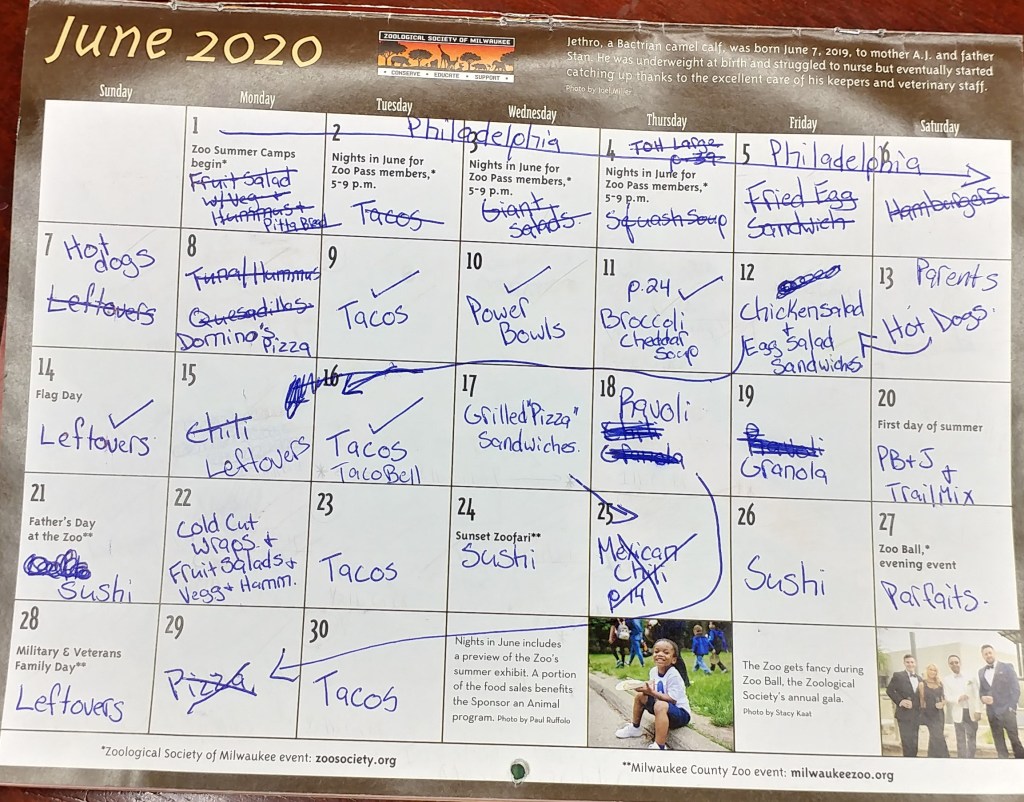 June 2020
ZOOLOGICAL SOCIETY OF MILWAUKEE
• CONSERVE • EDUCATE • SUPPORT •
Jethro, a Bactrian camel calf, was born June 7, 2019, to mother A.J. and father
Stan. He was underweight at birth and struggled to nurse but eventually started
catching up thanks to the excellent care of his keepers and veterinary staff.
Photo by Joel Miller
Sunday
Monday
Tuesday
Wednesday
Thursday
Friday
Saturday
Philadelphia
Philadelphia
1
Zoo Summer Camps
begin*
Fruit Salad
w/Veg +
Hummus +
Pitta Bread
2
Nights in June for
Zoo Pass members,*
5-9 p.m.
Tacos
3
Nights in June for
Zoo Pass members,*
5-9 p.m.
Giant
Salads.
4
p.39
Nights in June for
Zoo Pass members,*
5-9 p.m.
Squash Soup
5
Fried Egg
Sandwich
6
Hamburgers
7
Hot
dogs
Leftovers
8
Tuna/Hummus
Quesadillas
Domino's
Pizza
9
Tacos
10
Power
Bowls
11
p.24
Broccoli
Cheddar
Soup
12
Chickensalad
+
Egg Salad
Sandwiches
13
Parents
Hot Dogs.
14
Flag Day
Leftovers
15
Chili
Leftovers
16
Tacos
*Taco Bell
17
Grilled "Pizza"
Sandwiches.
18
Ravoli
Chili
Granola
19
Ravouli
Granola
20
First day of summer
PB+J
+
Trail Mix
21
Father's Day
at the Zoo**
Sushi
22
Cold Cut
Wraps +
Fruit Salads +
Vegg + Hamm.
23
Tacos
24
Sunset Zoofari**
Sushi
25
Mexican
Chili
p.14
26
Sushi
27
Zoo Ball,*
evening event
Parfaits.
28
Military & Veterans
Family Day**
Leftovers
29
Pizza
30
Tacos
Nights in June includes
a preview of the Zoo's
summer exhibit. A portion
of the food sales benefits
the Sponsor an Animal
program. Photo by Paul Ruffolo
The Zoo gets fancy during
Zoo Ball, the Zoological
Society's annual gala.
Photo by Stacy Kaat
*Zoological Society of Milwaukee event: zoosociety.org
**Milwaukee County Zoo event: milwaukeezoo.org